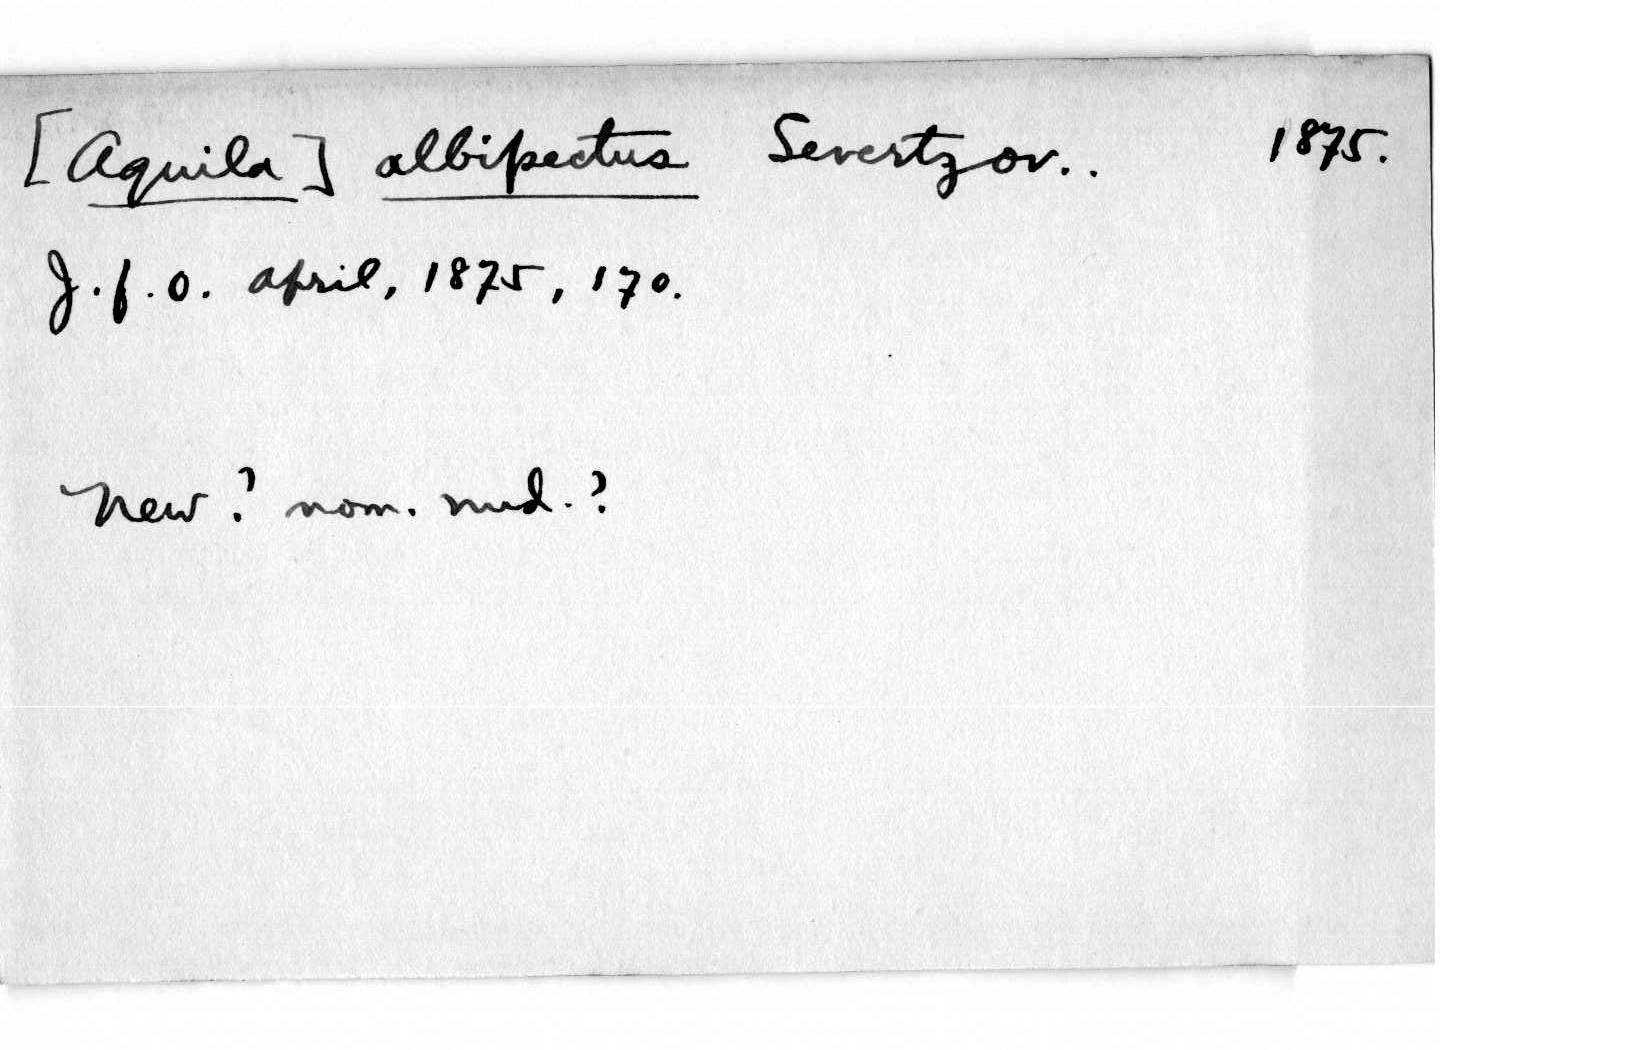 [Aquila] albipectus Severtzov.. 1875.
J.f.O. April, 1875, 170.
New? nom. nud.?